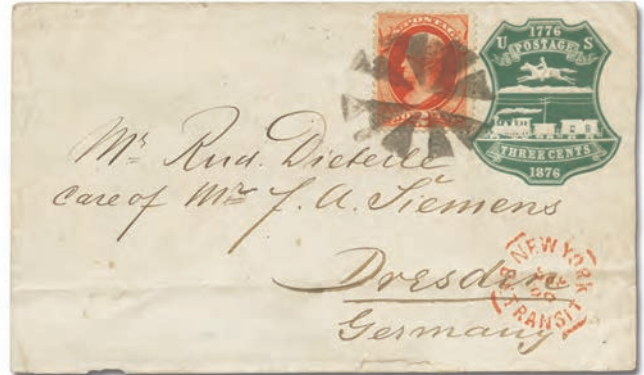 POSTAGE
1776
U POSTAGE S
THREE CENTS
1876
Mr Rud. Dieterle
care of Mr F. A. Siemens
Dresden
Germany
NEW YORK
TRANSIT